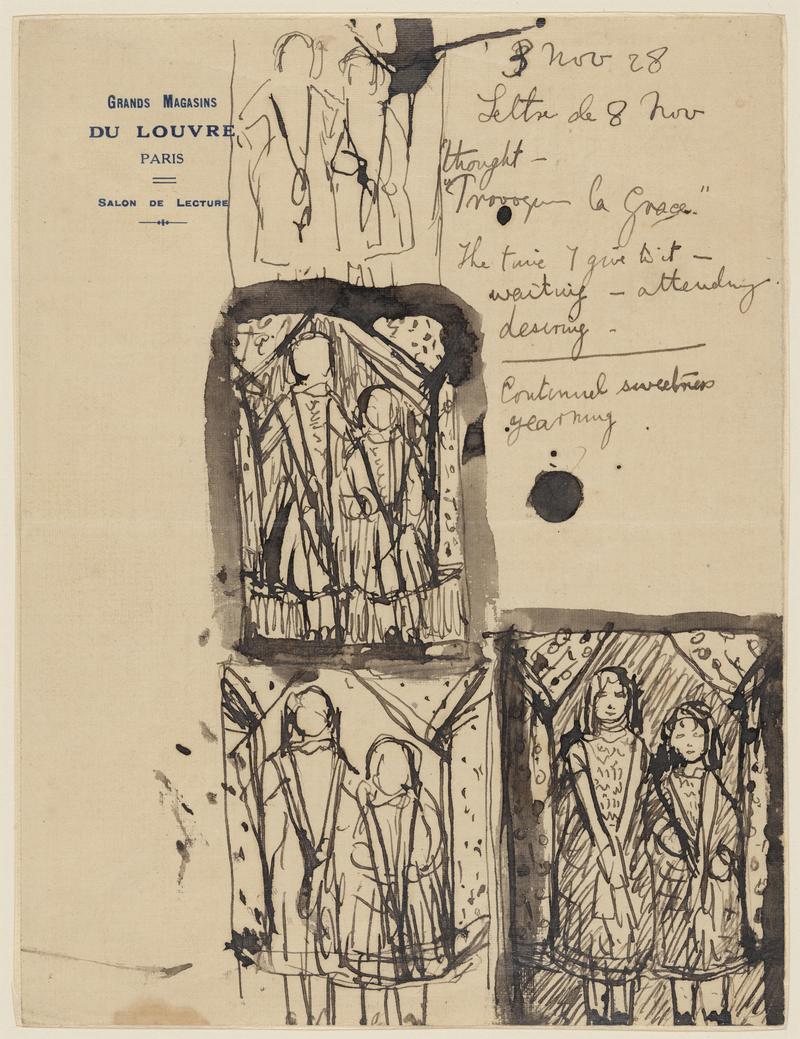 GRANDS MAGASINS
DU LOUVRE
PARIS
SALON DE LECTURE
8 Nov 28
Lettre de 8 Nov
thought —
"Provoquer la Grace."
The time I give to it —
waiting — attending
desiring -
Continuel sweetness
yearning